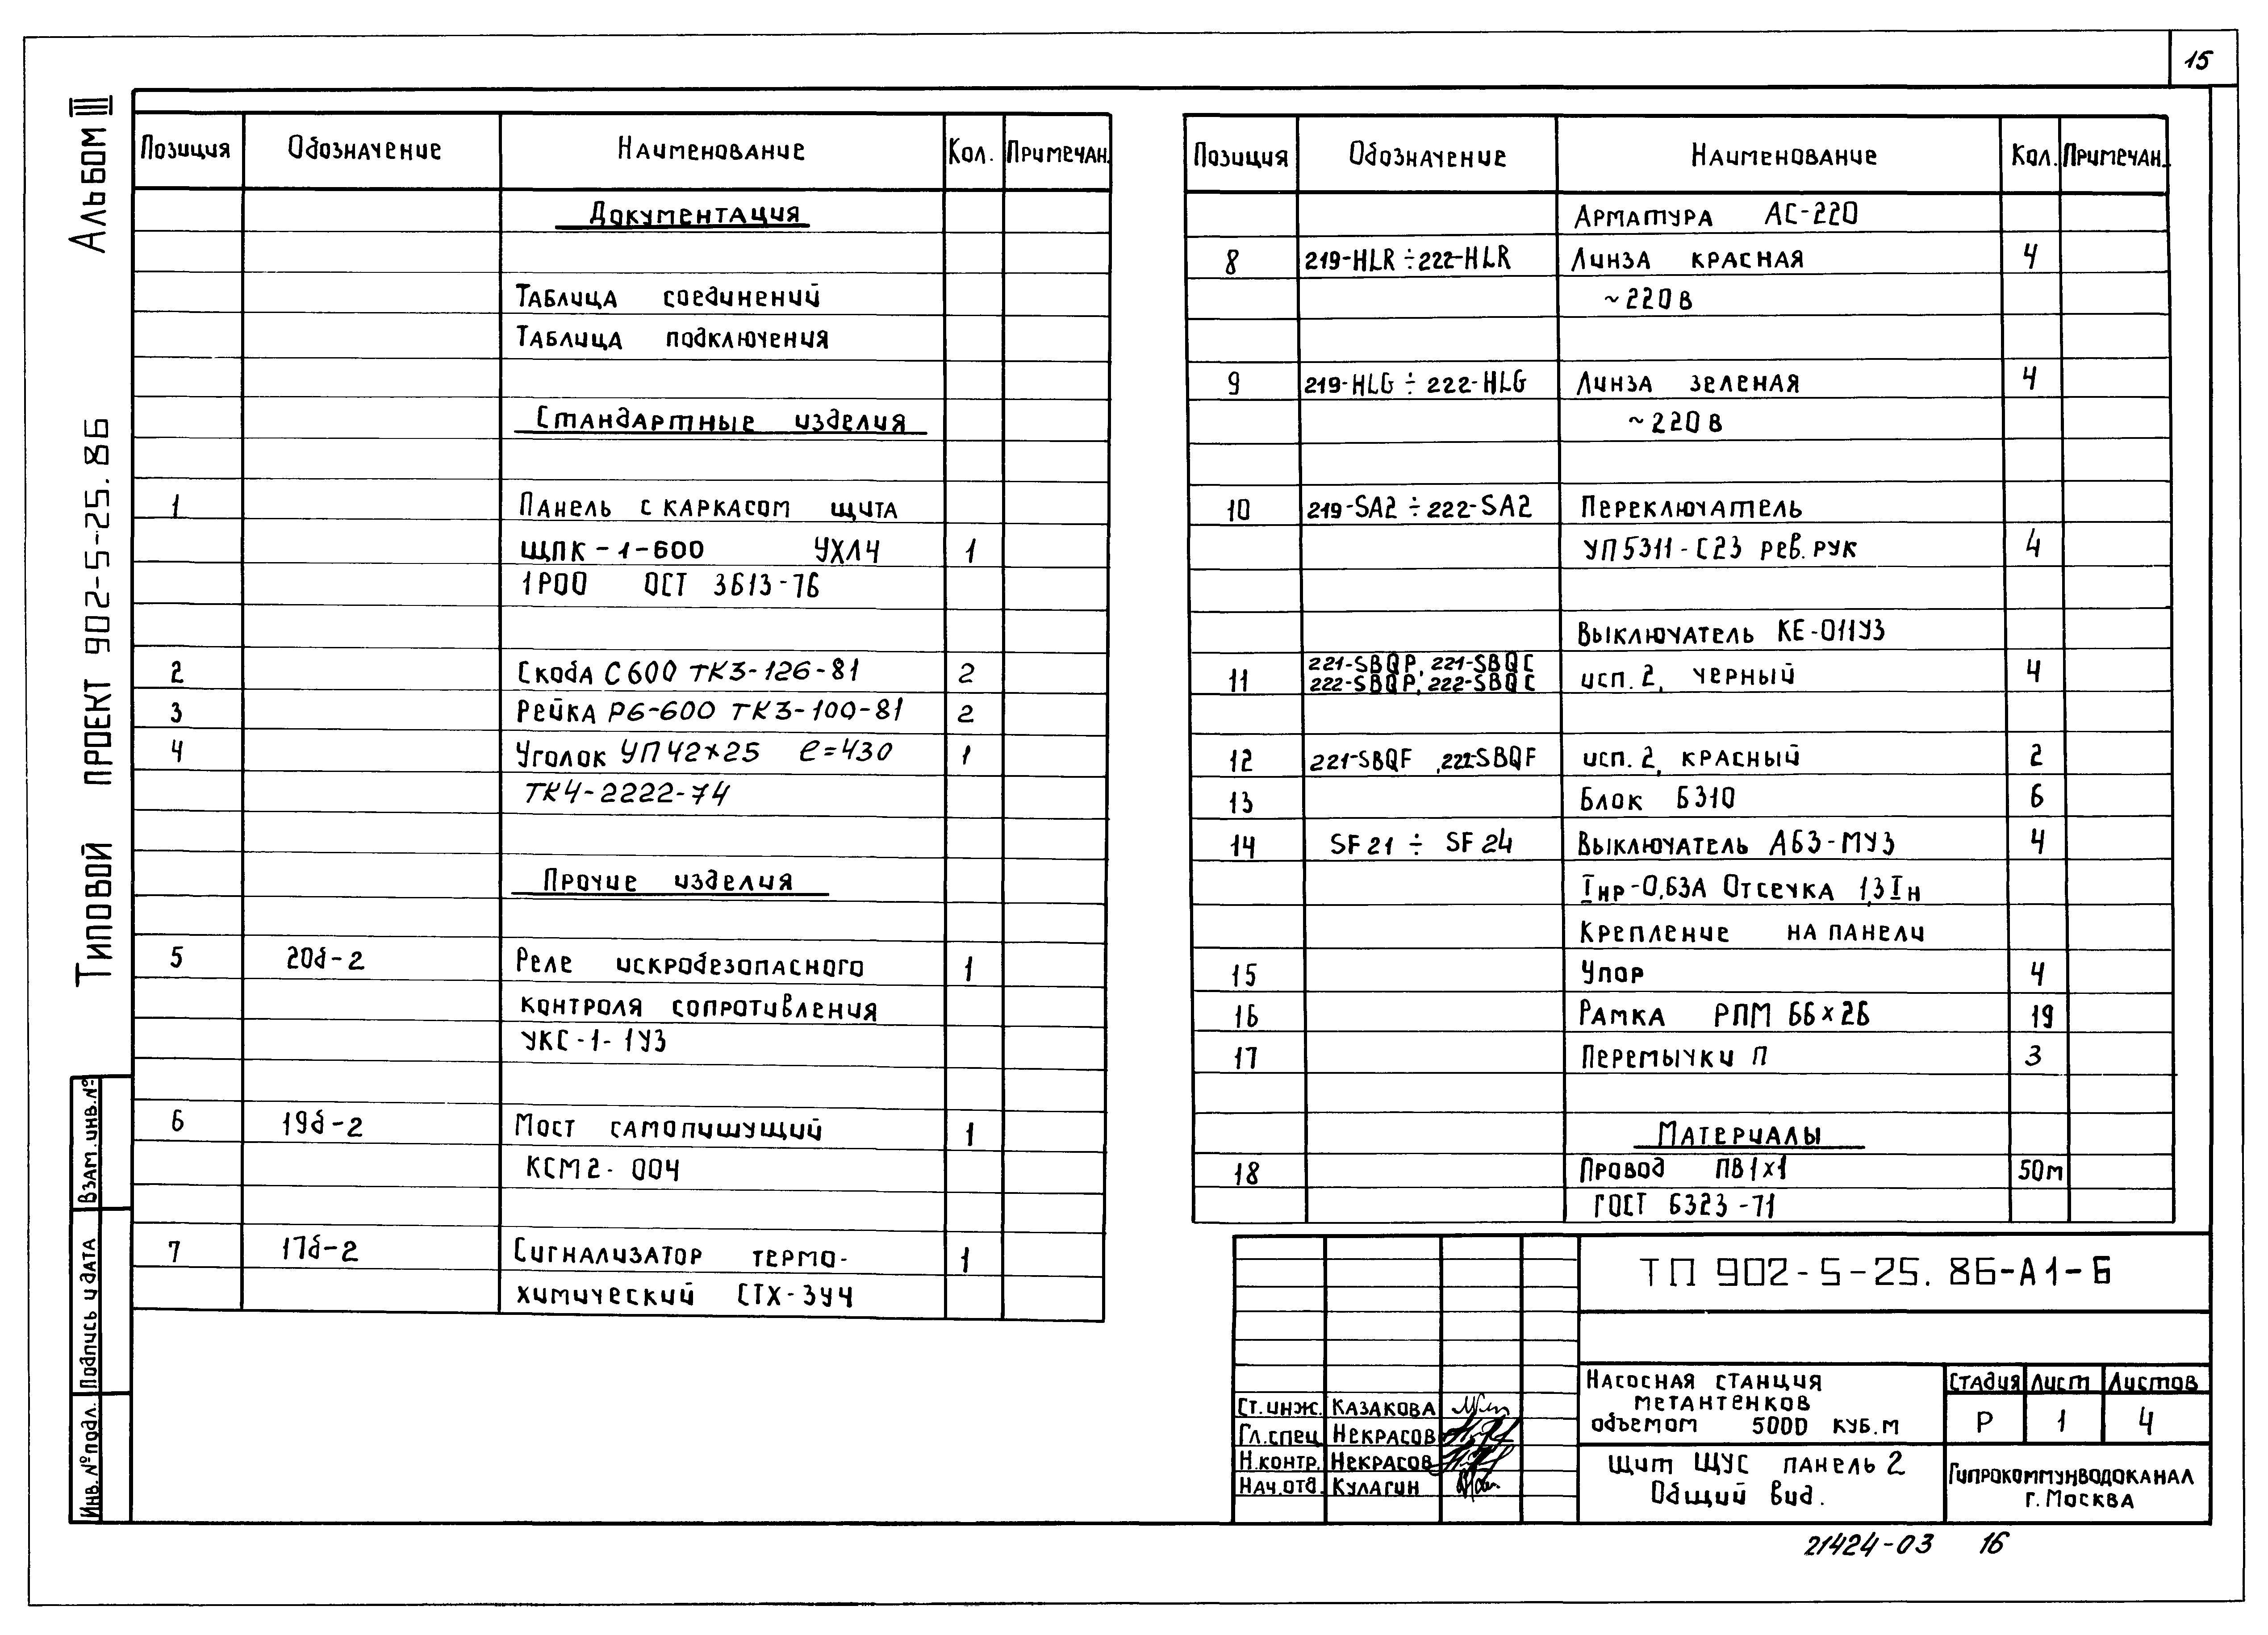 15
Альбом III
Типовой проект 902-5-25.86
Взам. инв. №
Подпись и дата
Инв. № подл.
Позиция Обозначение Наименование Кол. Примечан.
Документация
Таблица соединений
Таблица подключения
Стандартные изделия
1 Панель с каркасом щита
ЩПК-1-600 УХЛ4 1
1Р00 ОСТ 3613-76
2 Скоба С600 ТК3-126-81 2
3 Рейка Р6-600 ТК3-100-81 2
4 Уголок УП42х25 ℓ=430 1
ТК4-2222-74
Прочие изделия
5 20б-2 Реле искробезопасного 1
контроля сопротивления
УКС-1-1У3
6 19б-2 Мост самопишущий 1
КСМ2-004
7 17б-2 Сигнализатор термо- 1
химический СТХ-3У4
Позиция Обозначение Наименование Кол. Примечан.
Арматура АС-220
8 219-HLR÷222-HLR Линза красная 4
~220в
9 219-HLG÷222-HLG Линза зеленая 4
~220в
10 219-SA2÷222-SA2 Переключатель
УП5311-С23 рев. рук 4
Выключатель КЕ-011У3
221-SBQP, 221-SBQC
11 222-SBQP, 222-SBQC исп. 2, черный 4
12 221-SBQF, 222-SBQF исп. 2, красный 2
13 Блок Б310 6
14 SF21÷SF24 Выключатель А63-МУ3 4
Iнр-0,63А Отсечка 1,3Iн
Крепление на панели
15 Упор 4
16 Рамка РПМ 66х26 19
17 Перемычки П 3
Материалы
18 Провод ПВ1х1 50м
ГОСТ 6323-71
ТП 902-5-25.86-А1-6
Насосная станция
метантенков
объемом 5000 куб.м
Стадия Лист Листов
Р 1 4
Ст.инж. Казакова
Гл.спец Некрасов
Н.контр. Некрасов
Нач.отд. Кулагин
Щит ЩУС панель 2
Общий вид.
Гипрокоммунводоканал
г. Москва
21424-03 16